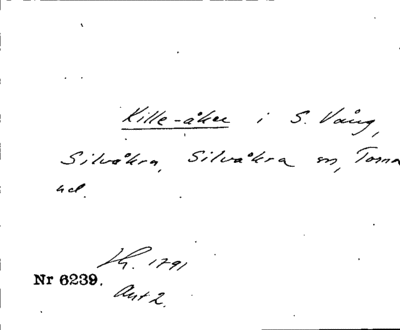 Kille-åker i S. Vång,
Silvåkra, Silvåkra sn, Torna
hd.
Lh. 1791
Nr 6239.
Akt 2.